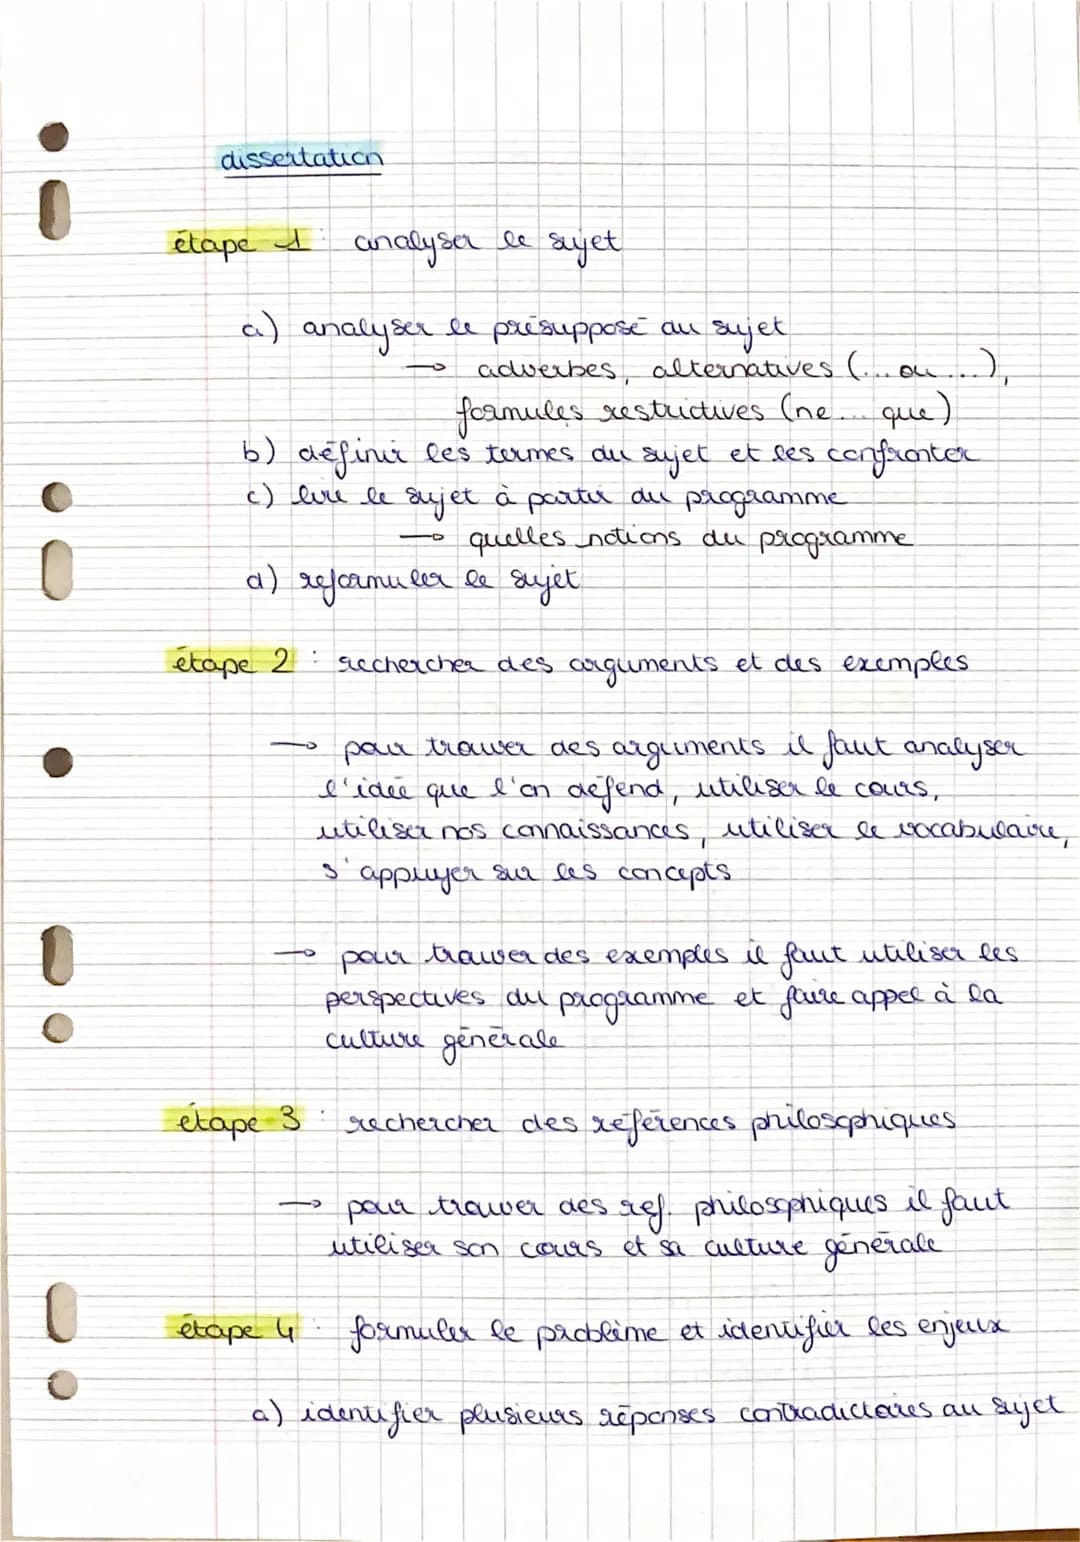 dissertation
étape 1 : analyser le sujet
a) analyser le présupposé du sujet
→ adverbes, alternatives (... ou ...),
formules restrictives (ne... que)
b) définir les termes du sujet et les confronter
c) lire le sujet à partir du programme
→ quelles notions du programme
d) reformuler le sujet
étape 2 : rechercher des arguments et des exemples
→ pour trouver des arguments il faut analyser
l'idée que l'on défend, utiliser le cours,
utiliser nos connaissances, utiliser le vocabulaire,
s'appuyer sur les concepts
→ pour trouver des exemples il faut utiliser les
perspectives du programme et faire appel à la
culture générale
étape 3 : rechercher des références philosophiques
→ pour trouver des ref. philosophiques il faut
utiliser son cours et sa culture générale
étape 4 : formuler le problème et identifier les enjeux
a) identifier plusieurs réponses contradictoires au sujet